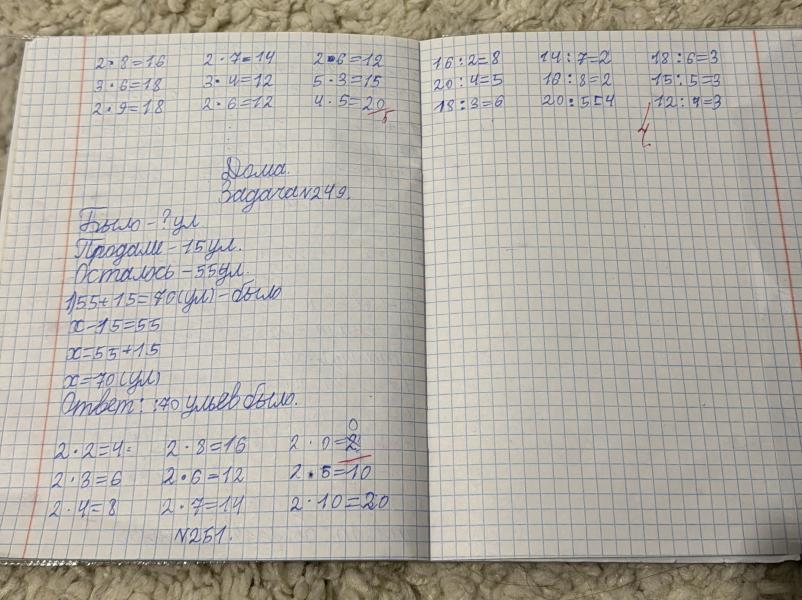 2·8=16 2·7=14 2·6=12
3·6=18 3·4=12 5·3=15
2·9=18 2·6=12 4·5=20
Дома.
Задача №249.
Было – ? ул
Продали – 15 ул.
Осталось – 55 ул.
1) 55+15=70 (ул) – было
х–15=55
х=55+15
х=70 (ул)
Ответ: :70 ульев было.
0
2·2=4 2·8=16 2·0=2
2·3=6 2·6=12 2·5=10
2·4=8 2·7=14 2·10=20
№251.
16:2=8 14:7=2 18:6=3
20:4=5 16:8=2 15:5=3
18:3=6 20:5=4 12:4=3
4